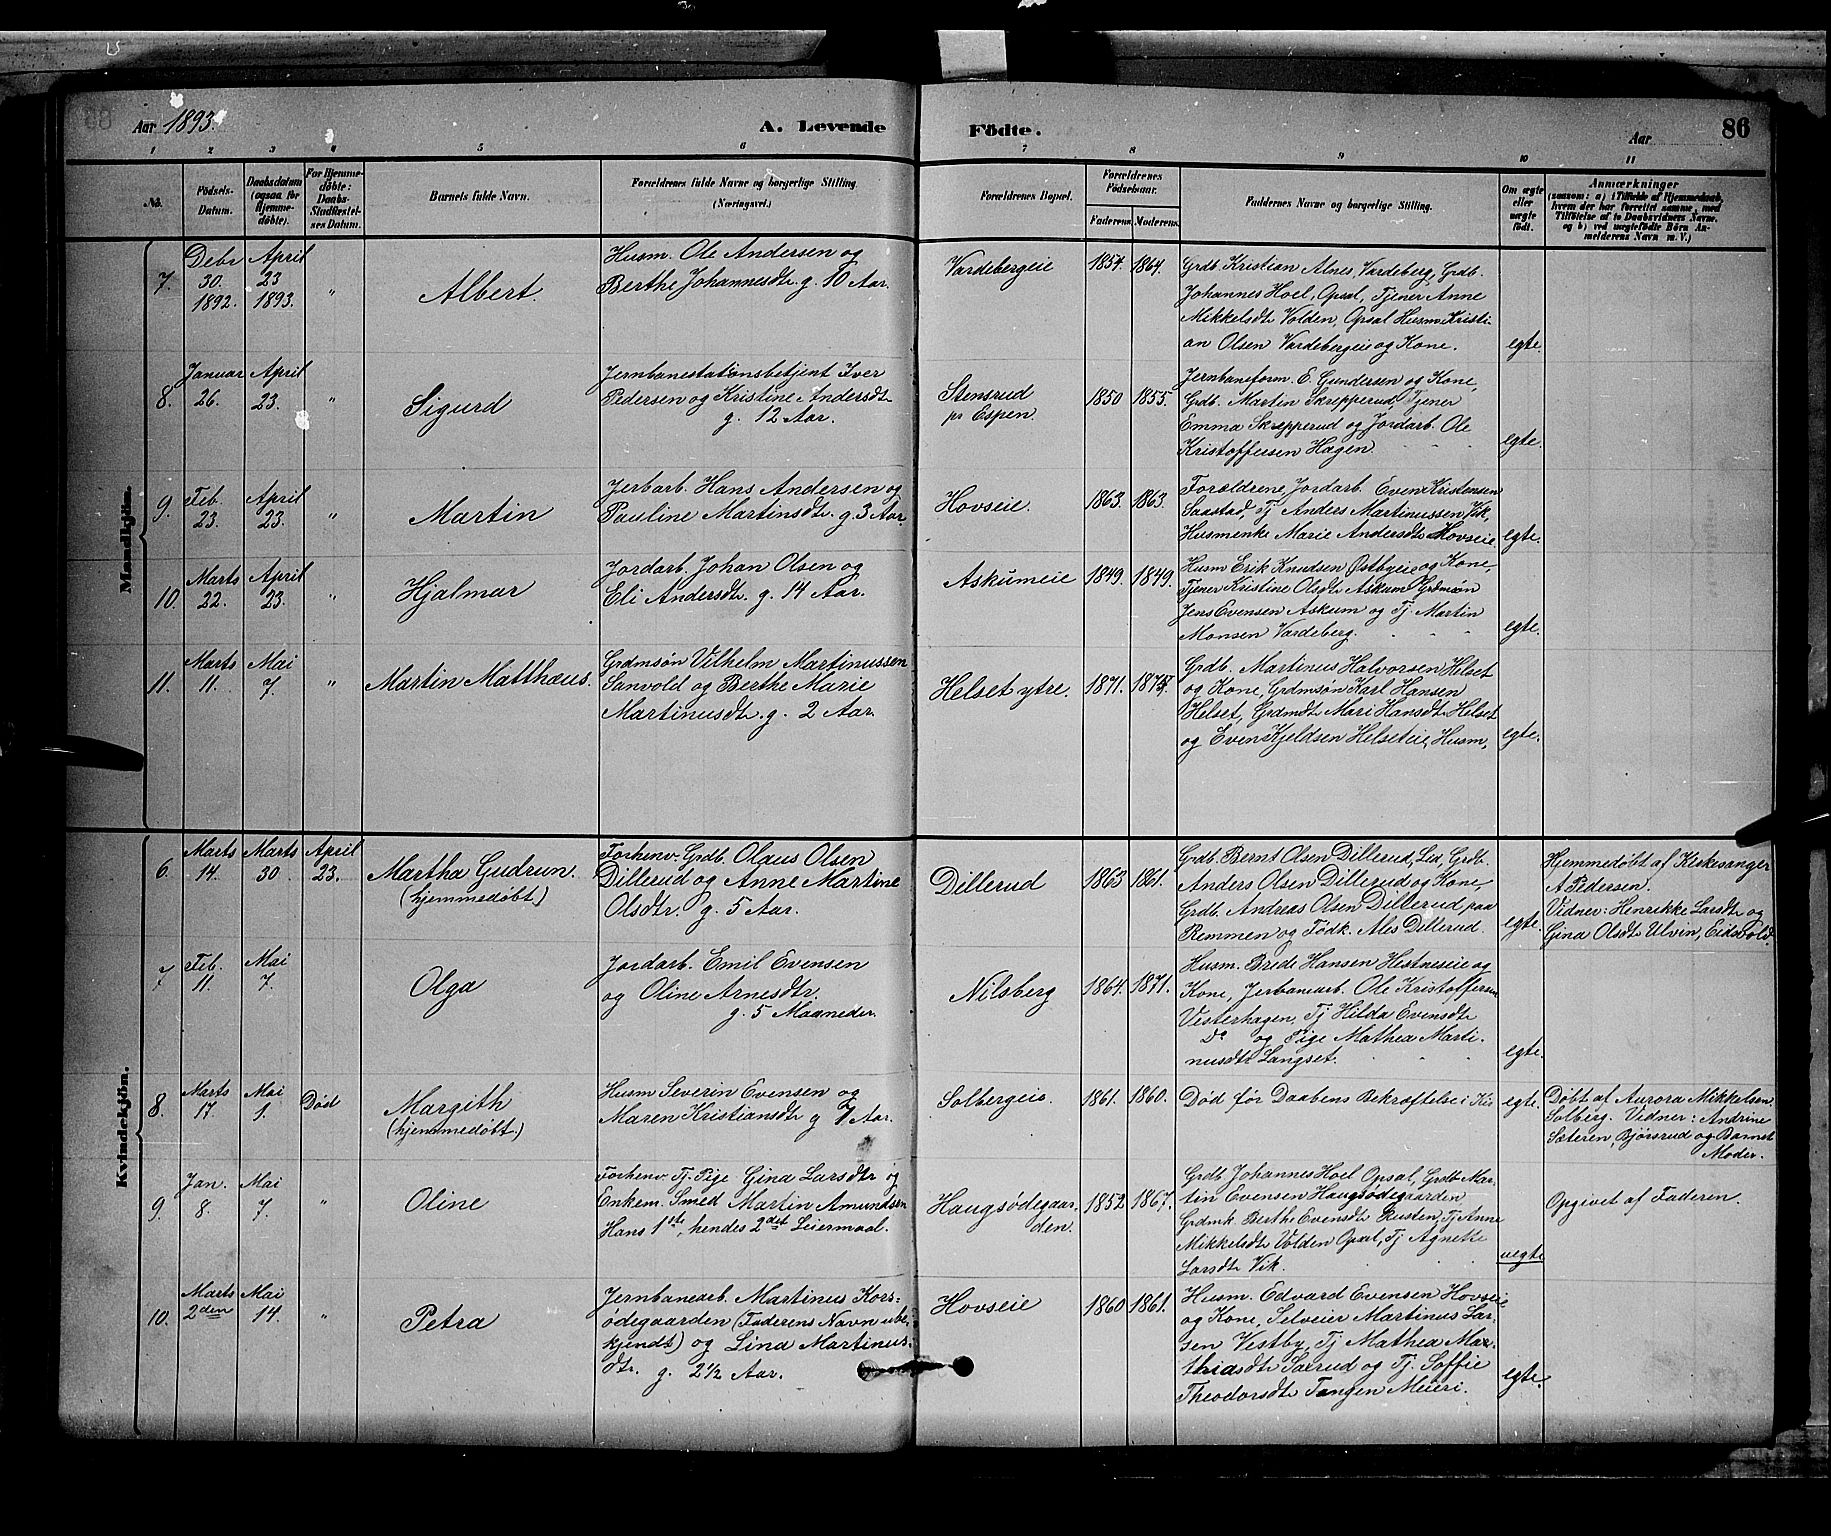 Aar 1893.
A. Levende
Födte.
Aar
86
1 2 3 4 5 6 7 8 9 10 11
No.
Födsels-
Datum.
Daabsdatum
(ogsaa for
Hjemme-
döbte).
For Hjemme-
döbte:
Daabs-
Stadfæstel-
ses Datum.
Barnets fulde Navn.
Forældrenes fulde Navne og borgerlige Stilling.
(Næringsvei.)
Forældrenes Bopæl.
Forældrenes
Födselsaar.
Faderens. Moderens.
Faddernes Navne og borgerlige Stilling.
Om ægte
eller
uægte
födt.
Anmærkninger
(saasom: a) i Tilfælde af Hjemmedaab,
hvem der har forrettet samme, med
Tilföielse af to Daabsvidners Navne,
og b) ved uægtefödte Börn An-
melderens Navn m. V.)
Mandkjön.
7.
Debr
30.
1892.
April
23
1893.
"
Albert.
Husm. Ole Andersen og
Berthe Johannesdt. g. 10 Aar.
Vardebergeie
1854. 1864.
Grdb. Kristian Alnes, Vardeberg, Grdb.
Johannes Hoel, Opsal, Tjener Anne
Mikkelsdt. Volden, Opsal Husm Kristi-
an Olsen Vardebergeie og Kone.
egte.
8.
Januar
26.
April
23.
"
Sigurd
Jernbanestationsbetjent Iver
Pedersen og Kristine Andersdt.
g. 12 Aar.
Stensrud
pr Espen.
1850 1855.
Jernbaneform. E. Gundersen og Kone,
Grdb. Martin Skrepperud, Tjener
Emma Skrepperud og Jordarb. Ole
Kristoffersen Hagen.
egte.
9.
Feb.
23.
April
23.
"
Martin
Jerbarb. Hans Andersen og
Pauline Martinsdt. g. 3 Aar.
Hovseie.
1863. 1863.
Forældrene, Jordarb. Even Kristensen
Saastad, Tj Anders Martinussen Vik,
Husmenke Marie Andersdt. Hovseie.
egte.
10.
Marts
22.
April
23.
"
Hjalmar
Jordarb. Johan Olsen og
Eli Andersdt. g. 14 Aar.
Askumeie
1849. 1849.
Husm Erik Knudsen Østbyeie og Kone,
Tjener Kristine Olsdt. Askum, Grdmsøn
Jens Evensen Askum og Tj. Martin
Monsen Vardeberg.
egte.
11.
Marts
11.
Mai
7.
"
Martin Matthæus.
Grdmsøn Vilhelm Martinussen
Sanvold og Berthe Marie
Martinusdt. g. 2 Aar.
Helset ytre.
1871.
Grdb. Martinus Halvorsen Helset
og Kone, Grdmsøn Karl Hansen
Helset, Grdmdt. Mari Hansdt. Helset
og Even Kjeldsen Helseteie, Husm,
egte.
Kvindekjön.
6.
Marts
14.
Marts
30.
April
23.
Martha Gudrun.
(hjemmedøbt)
Forhenv. Grdb. Olaus Olsen
Dillerud og Anne Martine
Olsdtr. g. 5 Aar.
Dillerud
1863 1861.
Grdb. Bernt Olsen Dillerud, Lid, Grdb.
Anders Olsen Dillerud og Kone,
Grdb. Andreas Olsen Dillerud paa
Remmen og Fødk. Ales Dillerud.
egte.
Hjemmedøbt af Kirkesanger
A Pedersen.
Vidner: Henrikke Larsdt. og
Gina Olsdt. Ulvin, Eidsvold.
7
Feb.
11.
Mai
7.
Olga
Jordarb. Emil Evensen
og Oline Arnesdtr.
g. 5 Maaneder.
Nilsberg
1864. 1871.
Husm. Brede Hansen Hestneseie og
Kone, Jerbanearb. Ole Kristoffersen
Vesterhagen, Tj Hilda Evensdt.
Do og Pige Mathea Marti-
nusdt. Langset.
egte.
8.
Marts
17
Mai
1.
Død
Margith
(hjemmedøbt.)
Husm Severin Evensen og
Maren Kristiansdt. g 7 Aar.
Solbergeie.
1861. 1860.
Død før Daabens Bekræftelse i Kir
egte.
Døbt af Aurora Mikkelsen
Solberg. Vidner: Andrine
Sæteren, Bjørsrud og Barnets
Moder.
9.
Jan.
8.
Mai
7.
"
Oline
Forhenv. Tj. Pige Gina Larsdtr og
Enkem. Smed Martin Amundsen
Hans 1ste, hendes 2det Leiermaal.
Haugsødegaar-
den.
1852 1867.
Grdb. Johannes Hoel Opsal, Grdb Mar-
tin Evensen Haugsødegaarden
Grdmk. Berthe Evensdt. Rusten, Tj Anne
Mikkelsdt. Volden Opsal, Tj Agnette
Larsdt. Vik.
uegte
Opgivet af Faderen.
10.
Marts
2den
Mai
14.
"
Petra
Jernbanearb. Martinus Kors-
ødegaarden (Faderens Navn ube-
kjendt) og Lina Martinus-
dtr. g. 2 1/2 Aar.
Hovseie
1860 1861.
Husm. Edvard Evensen Hovseie
og Kone, Selveier Martinus Lar-
sen Vestby, Tj Mathea Mat-
thiasdt. Saxrud og Tj. Soffie
Theodorsdt. Tangen Meieri.
egte.